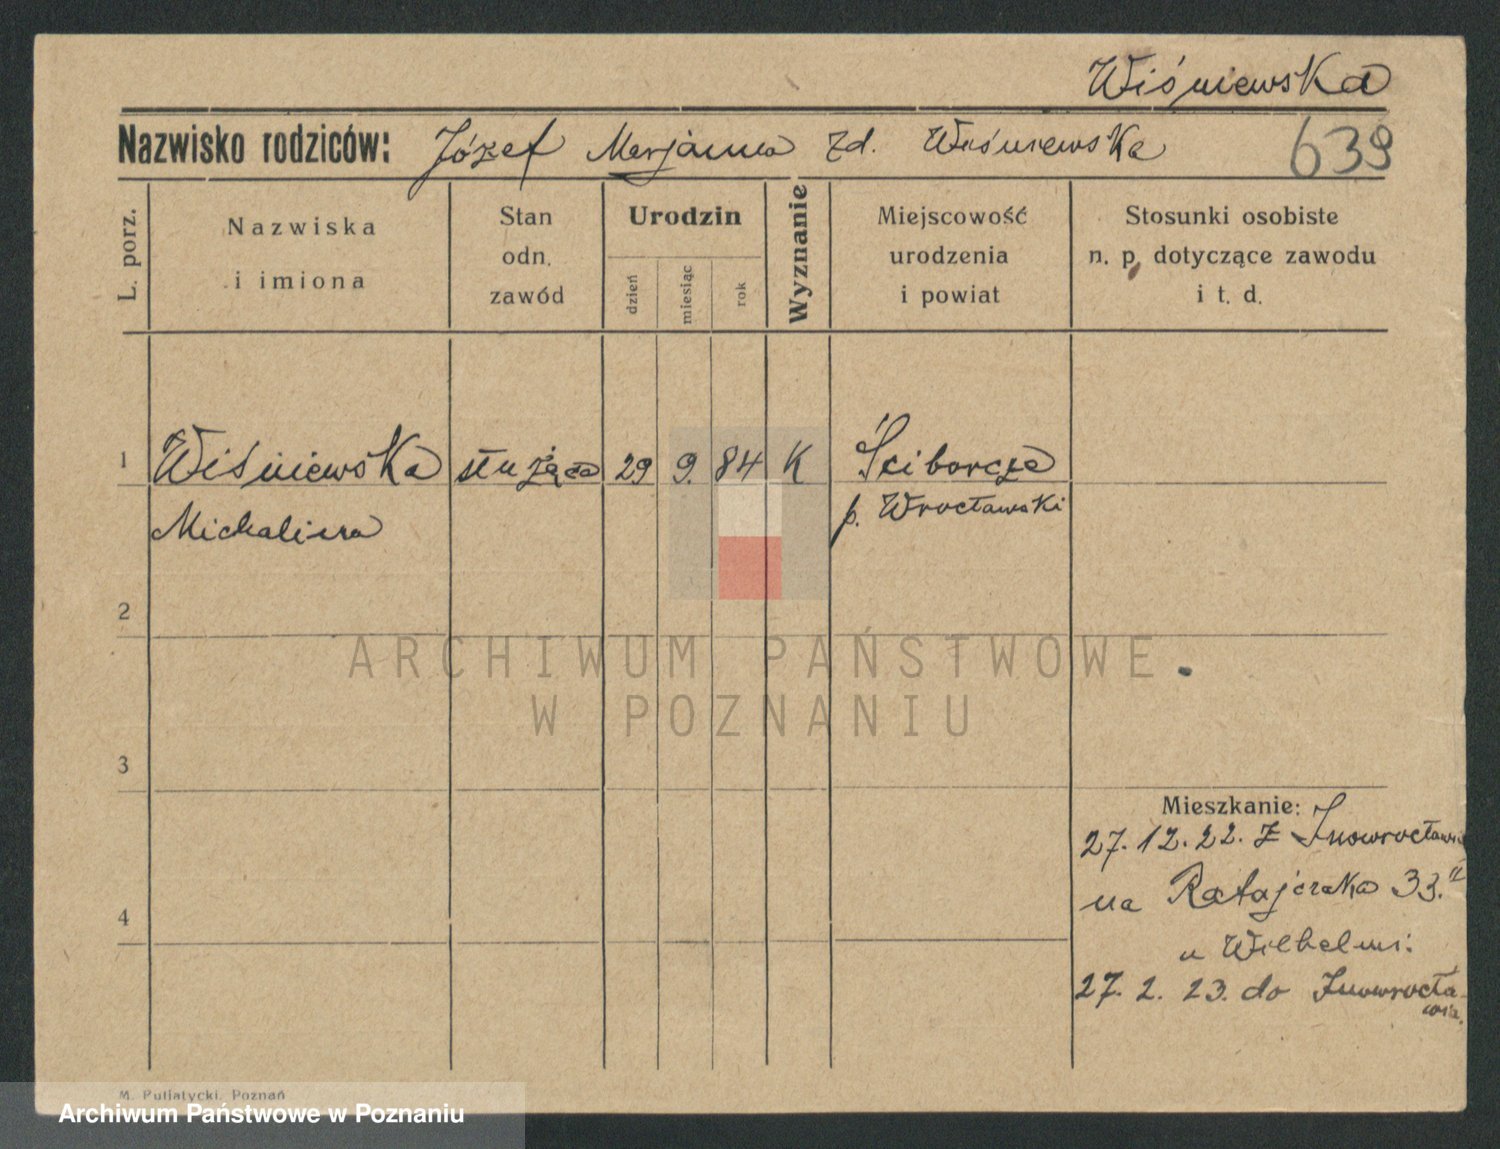 Wiśniewska
Nazwisko rodziców: Józef Marjanna zd. Wiśniewska 639
L. porz.
Nazwiska
i imiona
Stan
odn.
zawód
Urodzin
dzień
miesiąc
rok
Wyznanie
Miejscowość
urodzenia
i powiat
Stosunki osobiste
n. p. dotyczące zawodu
i t. d.
1 Wiśniewska służąca 29 9. 84 K Ściborze
Michalina p. Wrocławski
2
ARCHIWUM PAŃSTWOWE
W POZNANIU
3
Mieszkanie:
27. 12. 22. z Inowrocławia
na Ratajczaka 33. II
4
u Wilhelmi:
27. 2. 23. do Inowrocła-
wia.
M. Putiatycki, Poznań
Archiwum Państwowe w Poznaniu